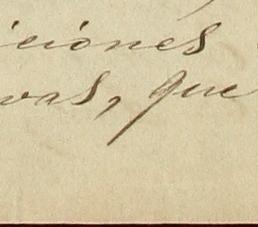 iciones
vas, que